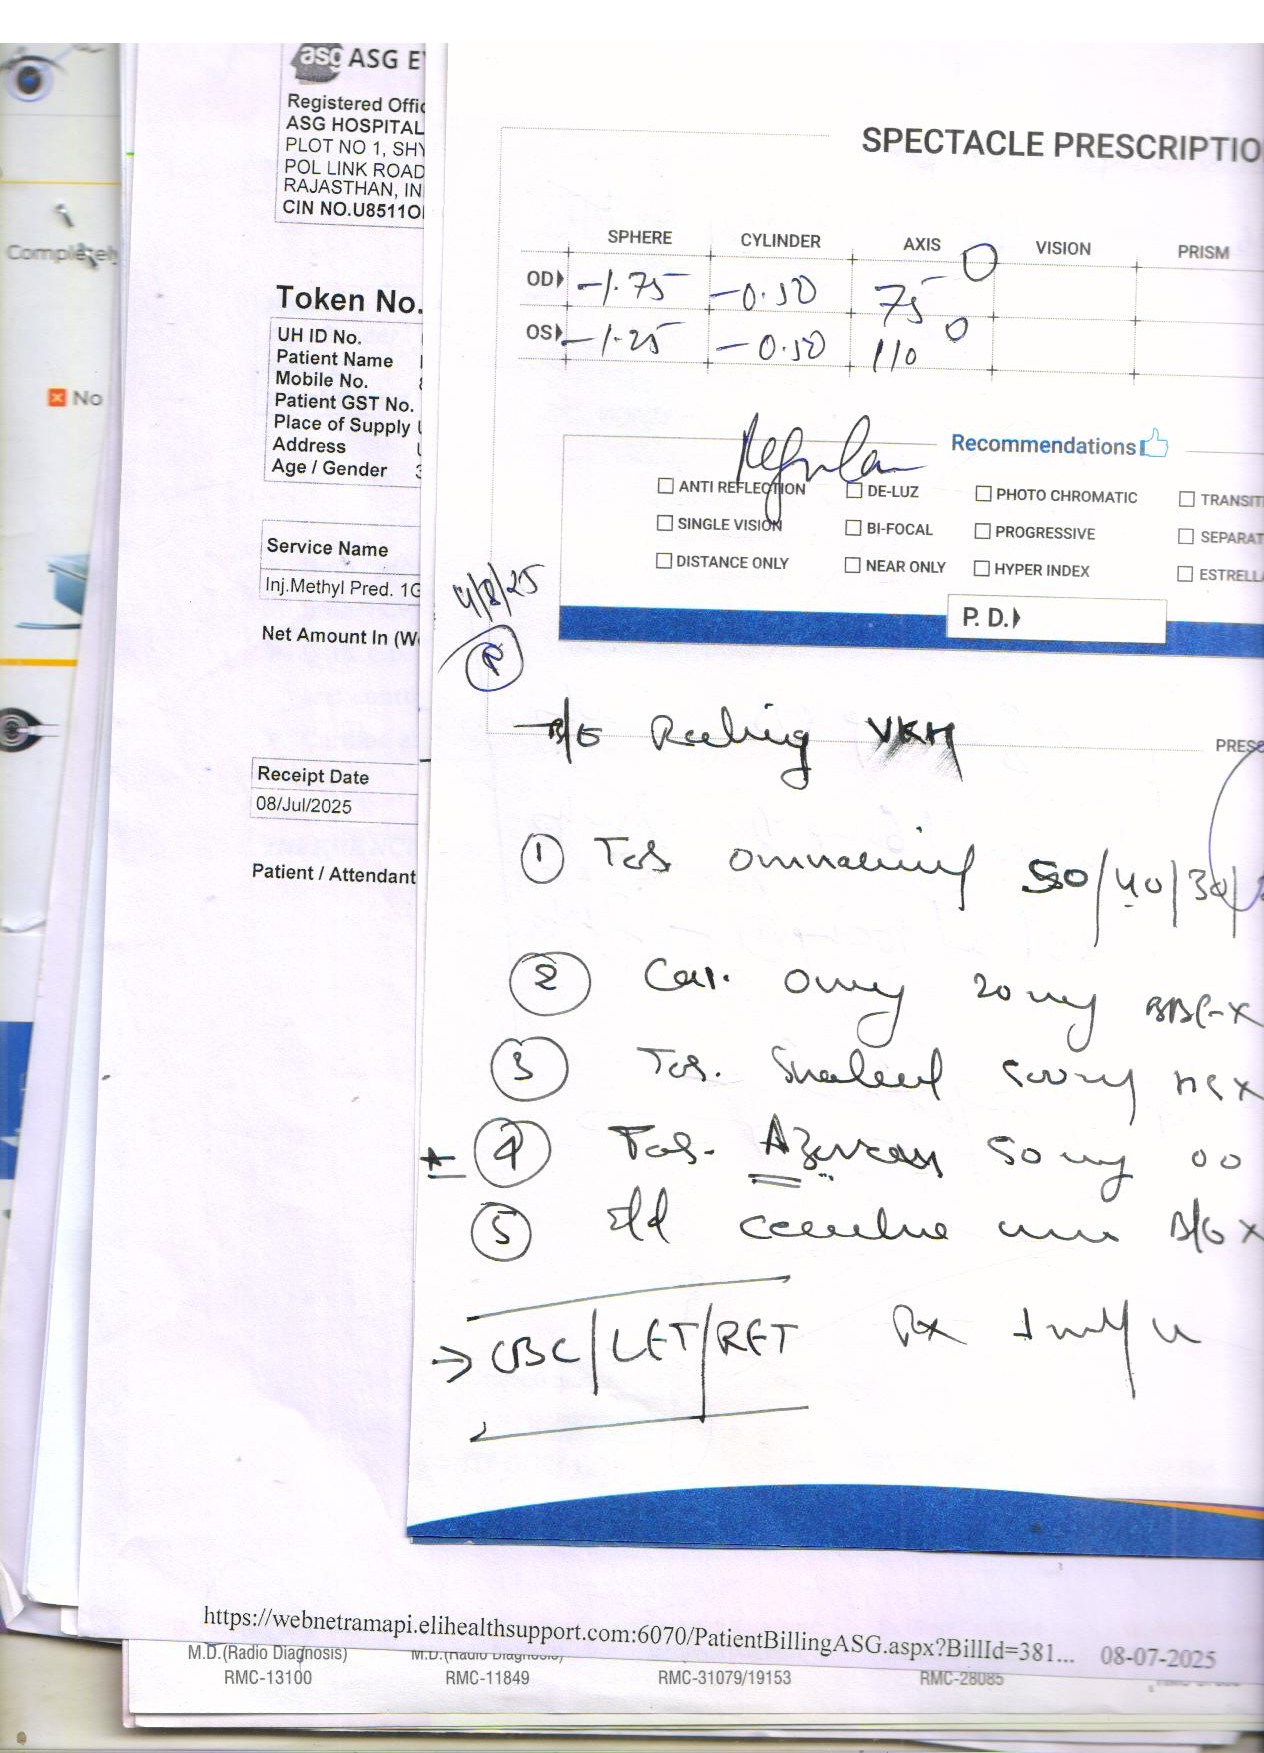 asg ASG E
Registered Offic
ASG HOSPITAL
PLOT NO 1, SHY
POL LINK ROAD
RAJASTHAN, IN
CIN NO.U8511O
Completely
No
Token No.
UH ID No.
Patient Name
Mobile No.
Patient GST No.
Place of Supply
Address
Age / Gender
Service Name
Inj.Methyl Pred. 1G
Net Amount In (W
Receipt Date
08/Jul/2025
Patient / Attendant
SPECTACLE PRESCRIPTIO
SPHERE CYLINDER AXIS VISION PRISM
OD -1.75 -0.50 75°
OS -1.25 -0.50 110°
Regular
Recommendations
ANTI REFLECTION DE-LUZ PHOTO CHROMATIC TRANSIT
SINGLE VISION BI-FOCAL PROGRESSIVE SEPARAT
DISTANCE ONLY NEAR ONLY HYPER INDEX ESTRELL
P. D.
4/8/25
B/E VKH
PRESC
1 Tab 50/40/30/
2 Cap. Omez 20 mg BBF X
3 Tab. 500mg X
4 Tab. 50 mg 00
5 E/d B/E X
→ CBC/LFT/RFT Rx
https://webnetramapi.elihealthsupport.com:6070/PatientBillingASG.aspx?BillId=381... 08-07-2025
M.D.(Radio Diagnosis) M.D.(Radio Diagnosis)
RMC-13100 RMC-11849 RMC-31079/19153 RMC-28085